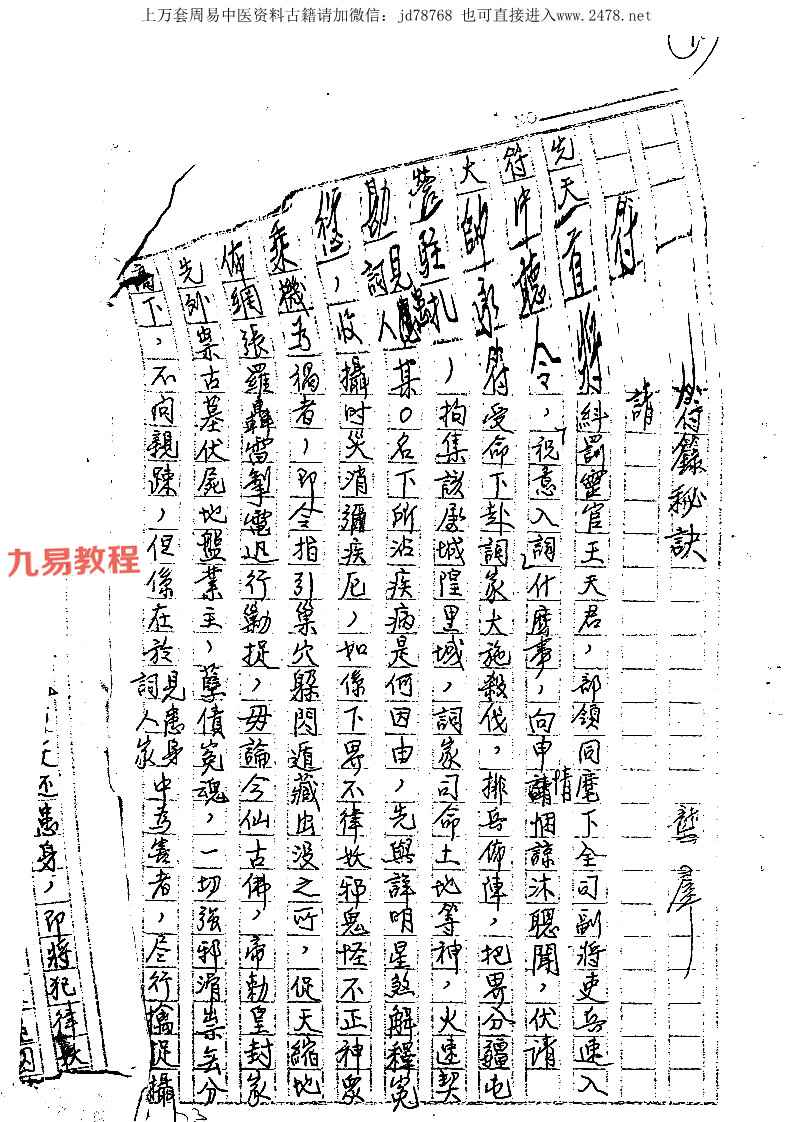 上万套周易中医资料古籍请加微信：jd78768 也可直接进入www.2478.net
符籙秘訣
請
先天首將糾罰靈官王天君，部領同麾下全司副將吏兵速入
符中聽令，祝意入詞什麽事，向申請情悃諒沐聰聞，伏請
大帥承符受命下赴詞家大施殺伐，排兵佈陣，把界分疆屯
營駐扎，拘集該處城隍里域，詞家司命土地等神，火速契
勘詞人見患某○名下所沾疾病是何因由，先與詳明星煞解釋冤
愆，收攝时災消彌疾厄，如係下界不律妖邪鬼怪不正神衆
乘機秀禍者，即令指引巢穴躲閃遁藏出没之所，促天縮地
佈網張羅轟雷掣電迅行勦捉，毋論今仙古佛，帝勅皇封家
先外祟古墓伏屍地盤業主，孽債冤魂，一切强邪渭祟無分
高下，不向親踈，但係在於詞人家見患身中為害者，尽行擒捉攝
九易教程
患身，即將犯律